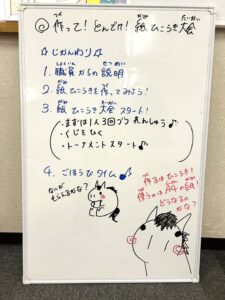 ◎ 作って！とんでけ！紙ひこうき大会
☆じかんわり♪☆
1. 職員からの説明
2. 紙ひこうきを作ってみよう！
3. 紙ひこうき大会スタート！
・まずは1人3回づつれんしゅう♪
・くじをひく
・トーナメントスタート♪
4. ごほうびタイム♪
なにがもらえるかな？
作るはひこうき！
使うのはA4の紙！
どうなるのかな？